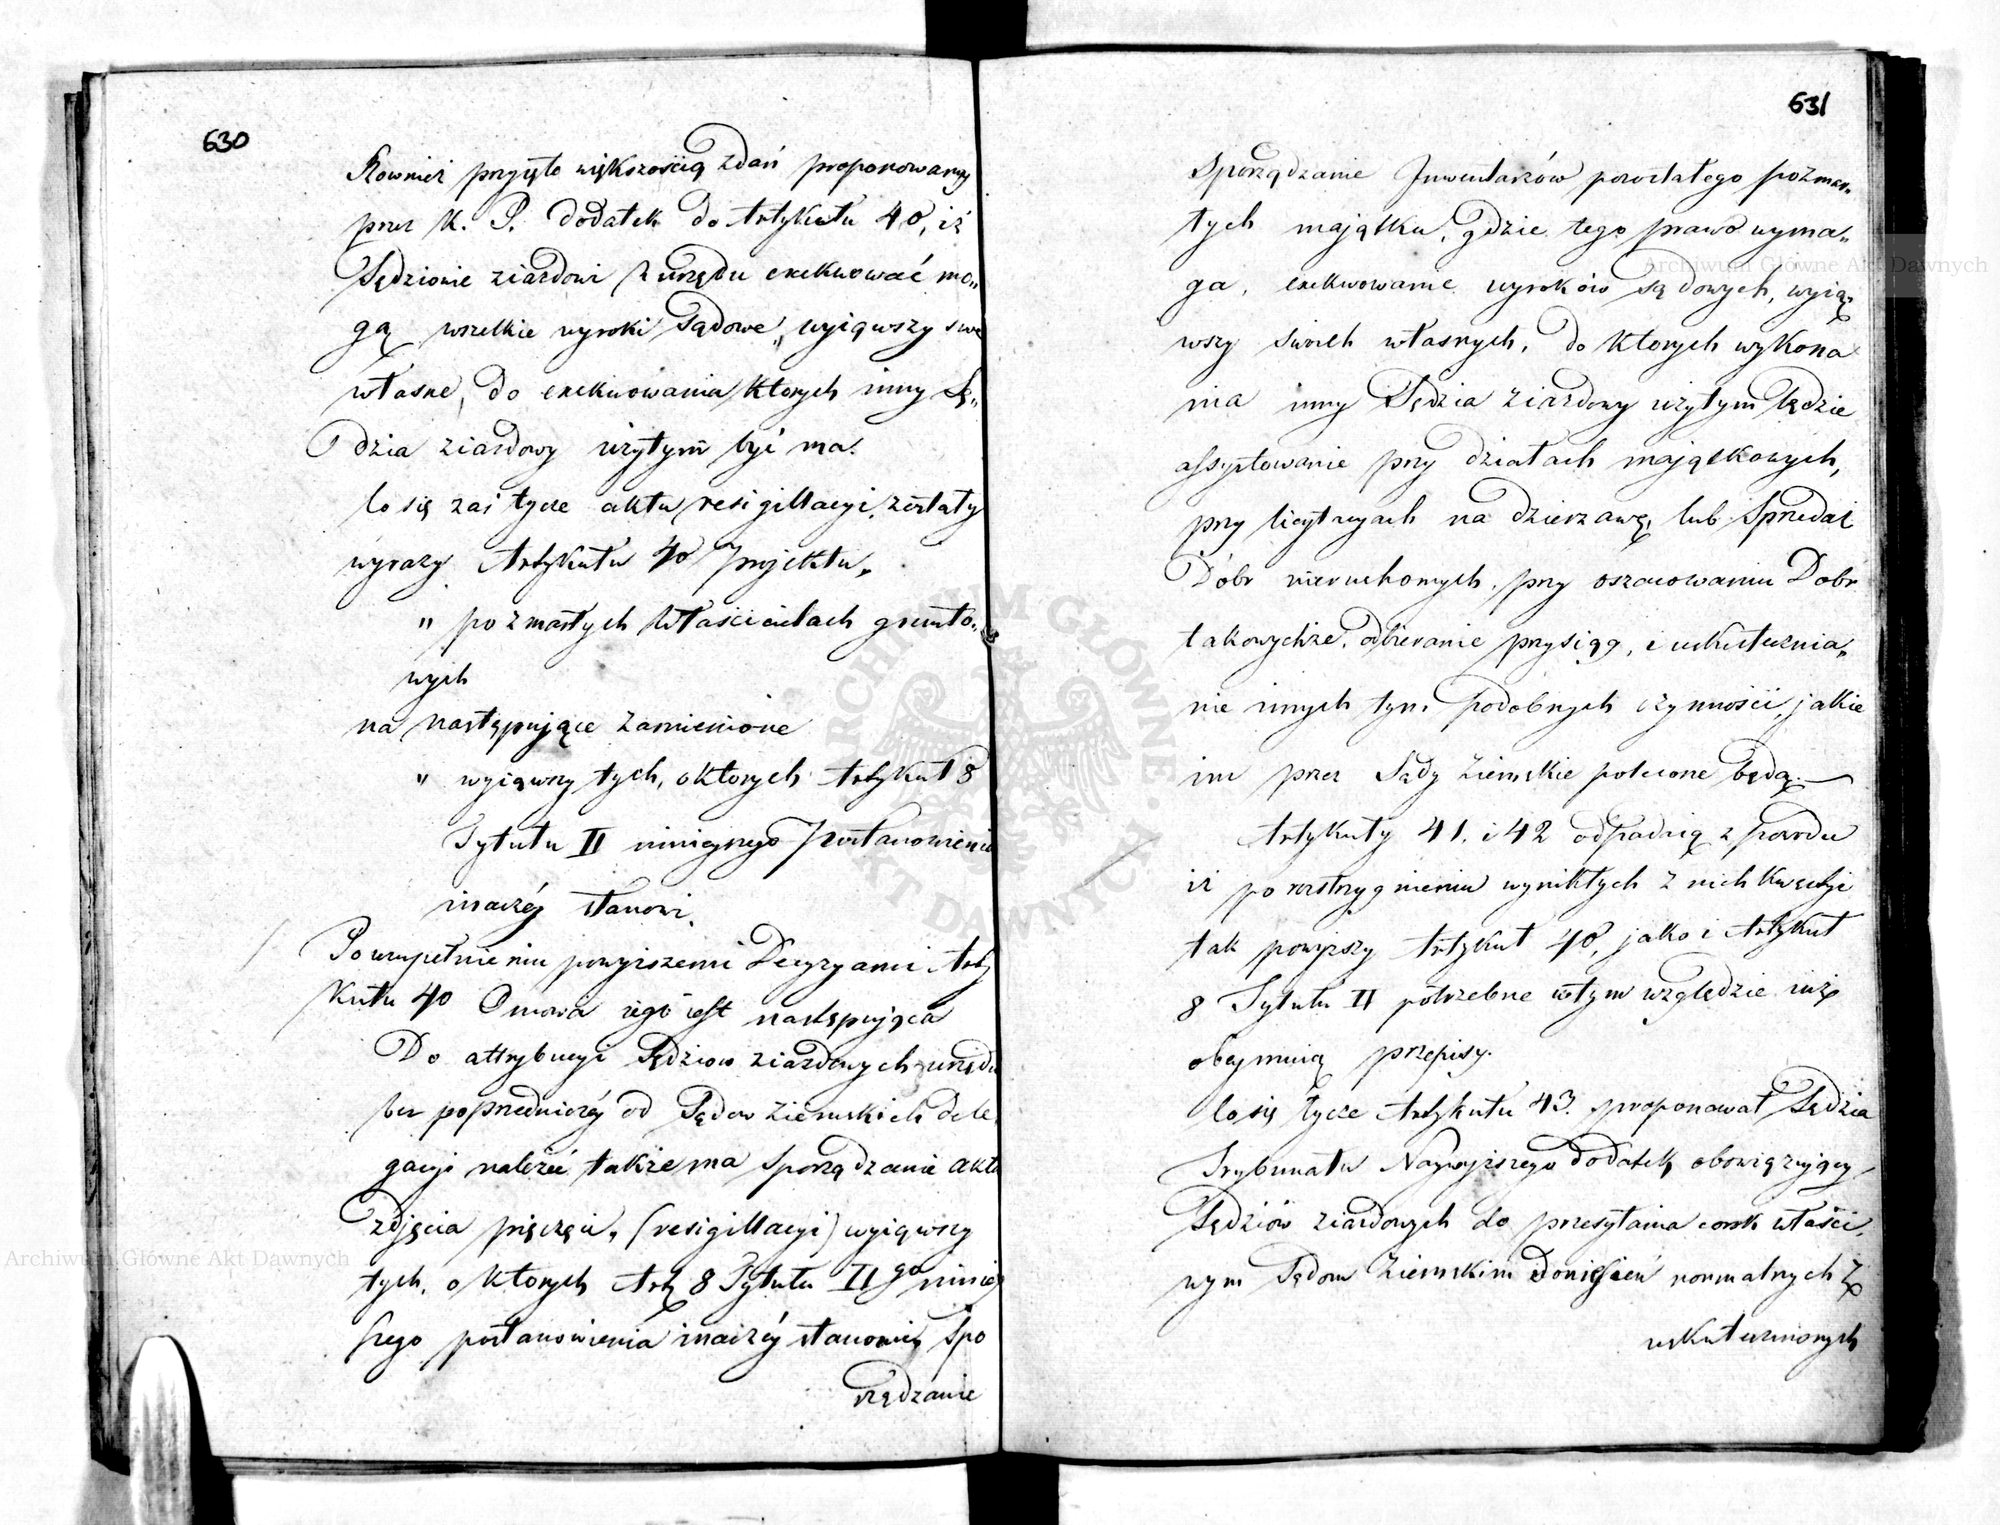 630
Rownież przyięto większością zdań proponowany
przez K. P. dodatek do Artykułu 40, iż
Sędziowie ziazdowi z urzędu exekwować mo„
gą wszelkie wyroki Sądowe, wyiąwszy swe
własne, do exekwowania których inny Sę„
dzia ziazdowy użytym być ma.
Co się zaś tycze aktu resigillacyi, zostały
wyrazy Artykułu 40 Projektu„
„ po zmarłych Właścicielach grunto„
wych
na następujące zamienione
„ wyiąwszy tych, o których Artykuł 8
Tytułu II ninieyszego Postanowienia
inaczéy stanowi.
Po uzupełnieniu powyższemi Decyzyami Arty
kułu 40 Osnowa iego iest następuiąca
Do attrybucyi Sędziow ziazdowych z urzędu
bez poprzedniczéy od Sądow Ziemskich dele
gacyi należeć także ma Sporządzanie aktu
zdjęcia pieczęci, (resigillacyi) wyiąwszy
tych, o których Arty 8 Tytułu II go niniey
szego postanowienia inaczéy stanowi, Spo
rządzanie
631
Sporządzanie Inwentarzów pozostałego po zmar„
łych majątku, gdzie tego prawo wyma„
ga, exekwowanie wyroków Sądowych, wyiąw
wszy swoich własnych, do ktorych wykona
nia inny Sędzia ziazdowy użytym będzie
assystowanie przy działach majątkowych,
przy licytacyach na dzierzawę, lub Sprzedaż
Dóbr nieruchomych, przy oszacowaniu Dobr
takowychże, odbieranie przysiąg, i uskutecznia„
nie innych tym podobnych czynności, jakie
im przez Sądy Ziemskie polecone będą.
Artykuły 41. i 42 odpadaią z powodu
iż po rozstrzygnieniu wynikłych z nich Kwestyi
tak powyższy Artykuł 40, jako i Artykuł
8 Tytułu II potrzebne w tym względzie już
obeymuią przepisy.
Co się tycze Artykułu 43. proponował Sędzia
Trybunału Naywyższego dodatek obowiązuiący
Sędziów ziazdowych do przesyłania corok właści„
wym Sądom Ziemskim doniesień normalnych z
uskutecznionych
Archiwum Główne Akt Dawnych
Archiwum Główne Akt Dawnych
ARCHIWUM GŁÓWNE AKT DAWNYCH